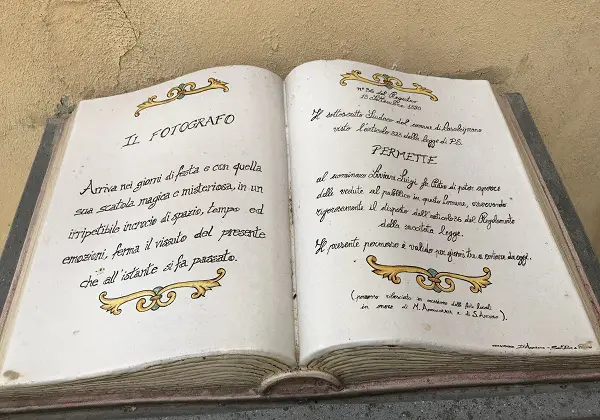 IL FOTOGRAFO
Arriva nei giorni di festa e con quella
sua scatola magica e misteriosa, in un
irripetibile incrocio di spazio, tempo ed
emozioni, ferma il vissuto del presente
che all'istante si fa passato.
N° 36 del Registro
Il sottoscritto Sindaco del comune di
visto l'articolo della legge di P.S.
PERMETTE
al nominato Luigi fu Pietro di poter esporre
delle vedute al pubblico in questo Comune, osservando
rigorosamente il disposto dell'articolo 36 del Regolamento
della succitata legge.
Il presente permesso è valido per giorni tre a contare da oggi.
(permesso rilasciato in occasione delle fiere locali
in onore di M. Annunziata e di S. Arturo).